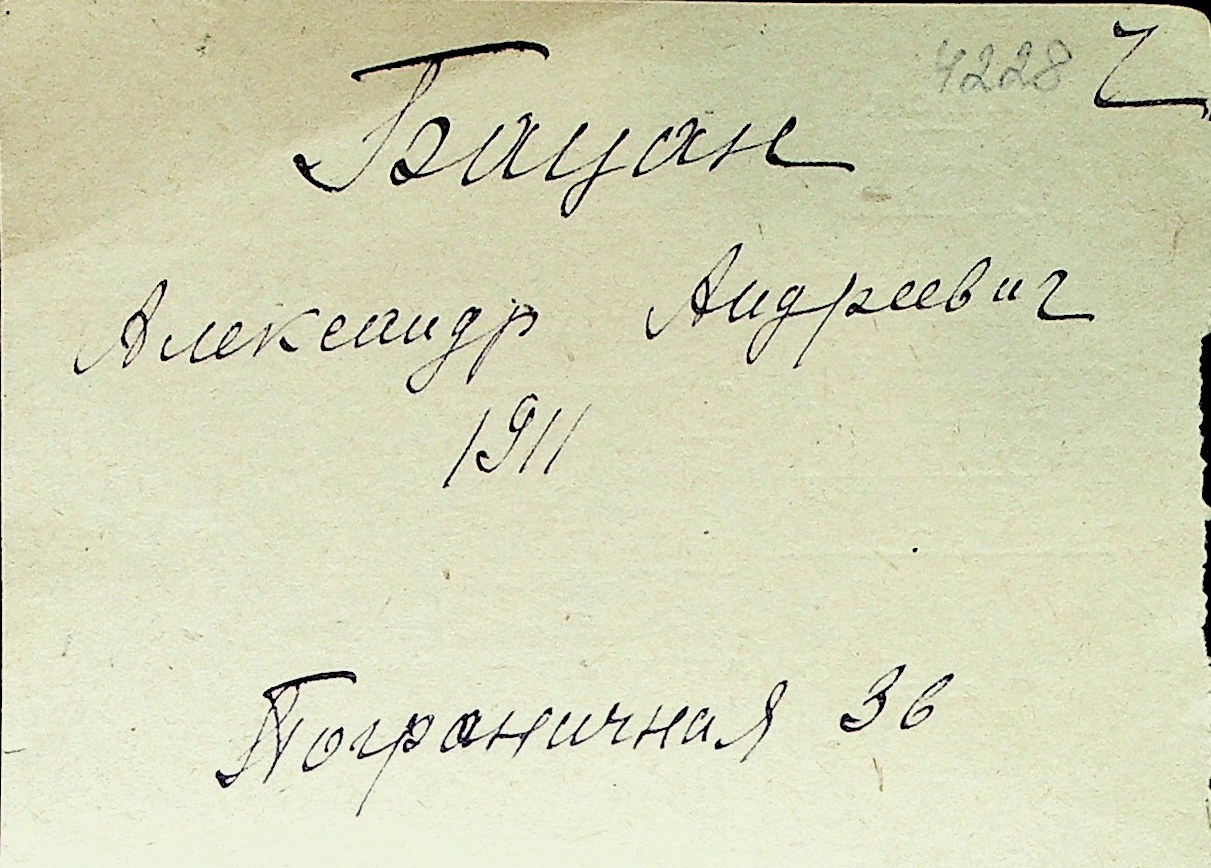 4228 Ч
Бацан
Александр Андреевич
1911
Пограничная 36